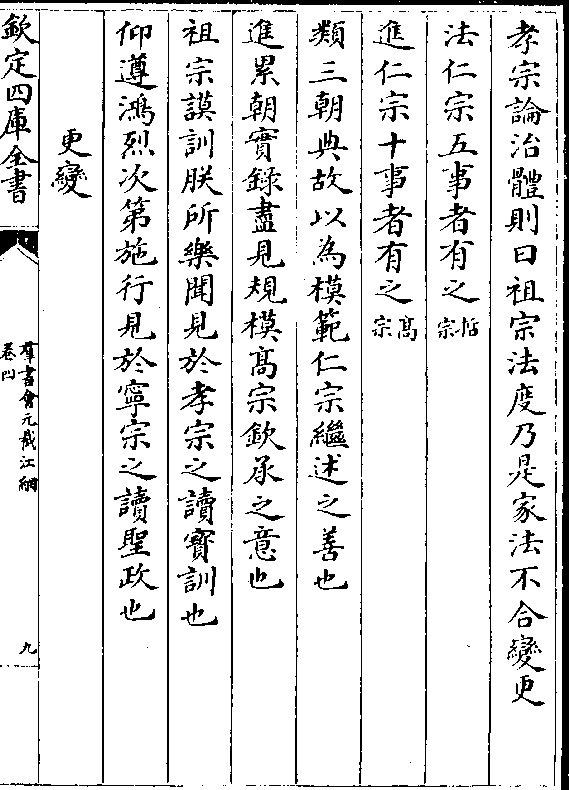 孝宗論治體則曰祖宗法度乃是家法不合變更
法仁宗五事者有之哲宗
進仁宗十事者有之髙宗
類三朝典故以為模範仁宗繼述之善也
進累朝實録盡見規模髙宗欽承之意也
祖宗謨訓朕所樂聞見於孝宗之讀寳訓也
仰遵鴻烈次第施行見於寧宗之讀聖政也
更變
欽定四庫全書
羣書會元截江網
卷四
九